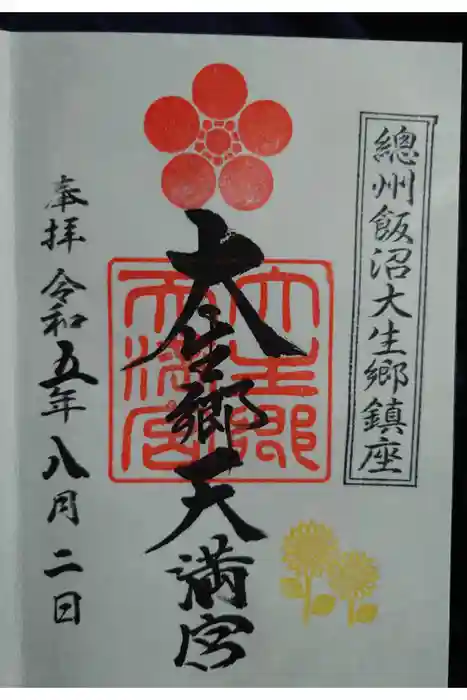 總州飯沼大生郷鎮座
大生郷天満宮
大生郷天満宮
奉拝 令和五年八月二日